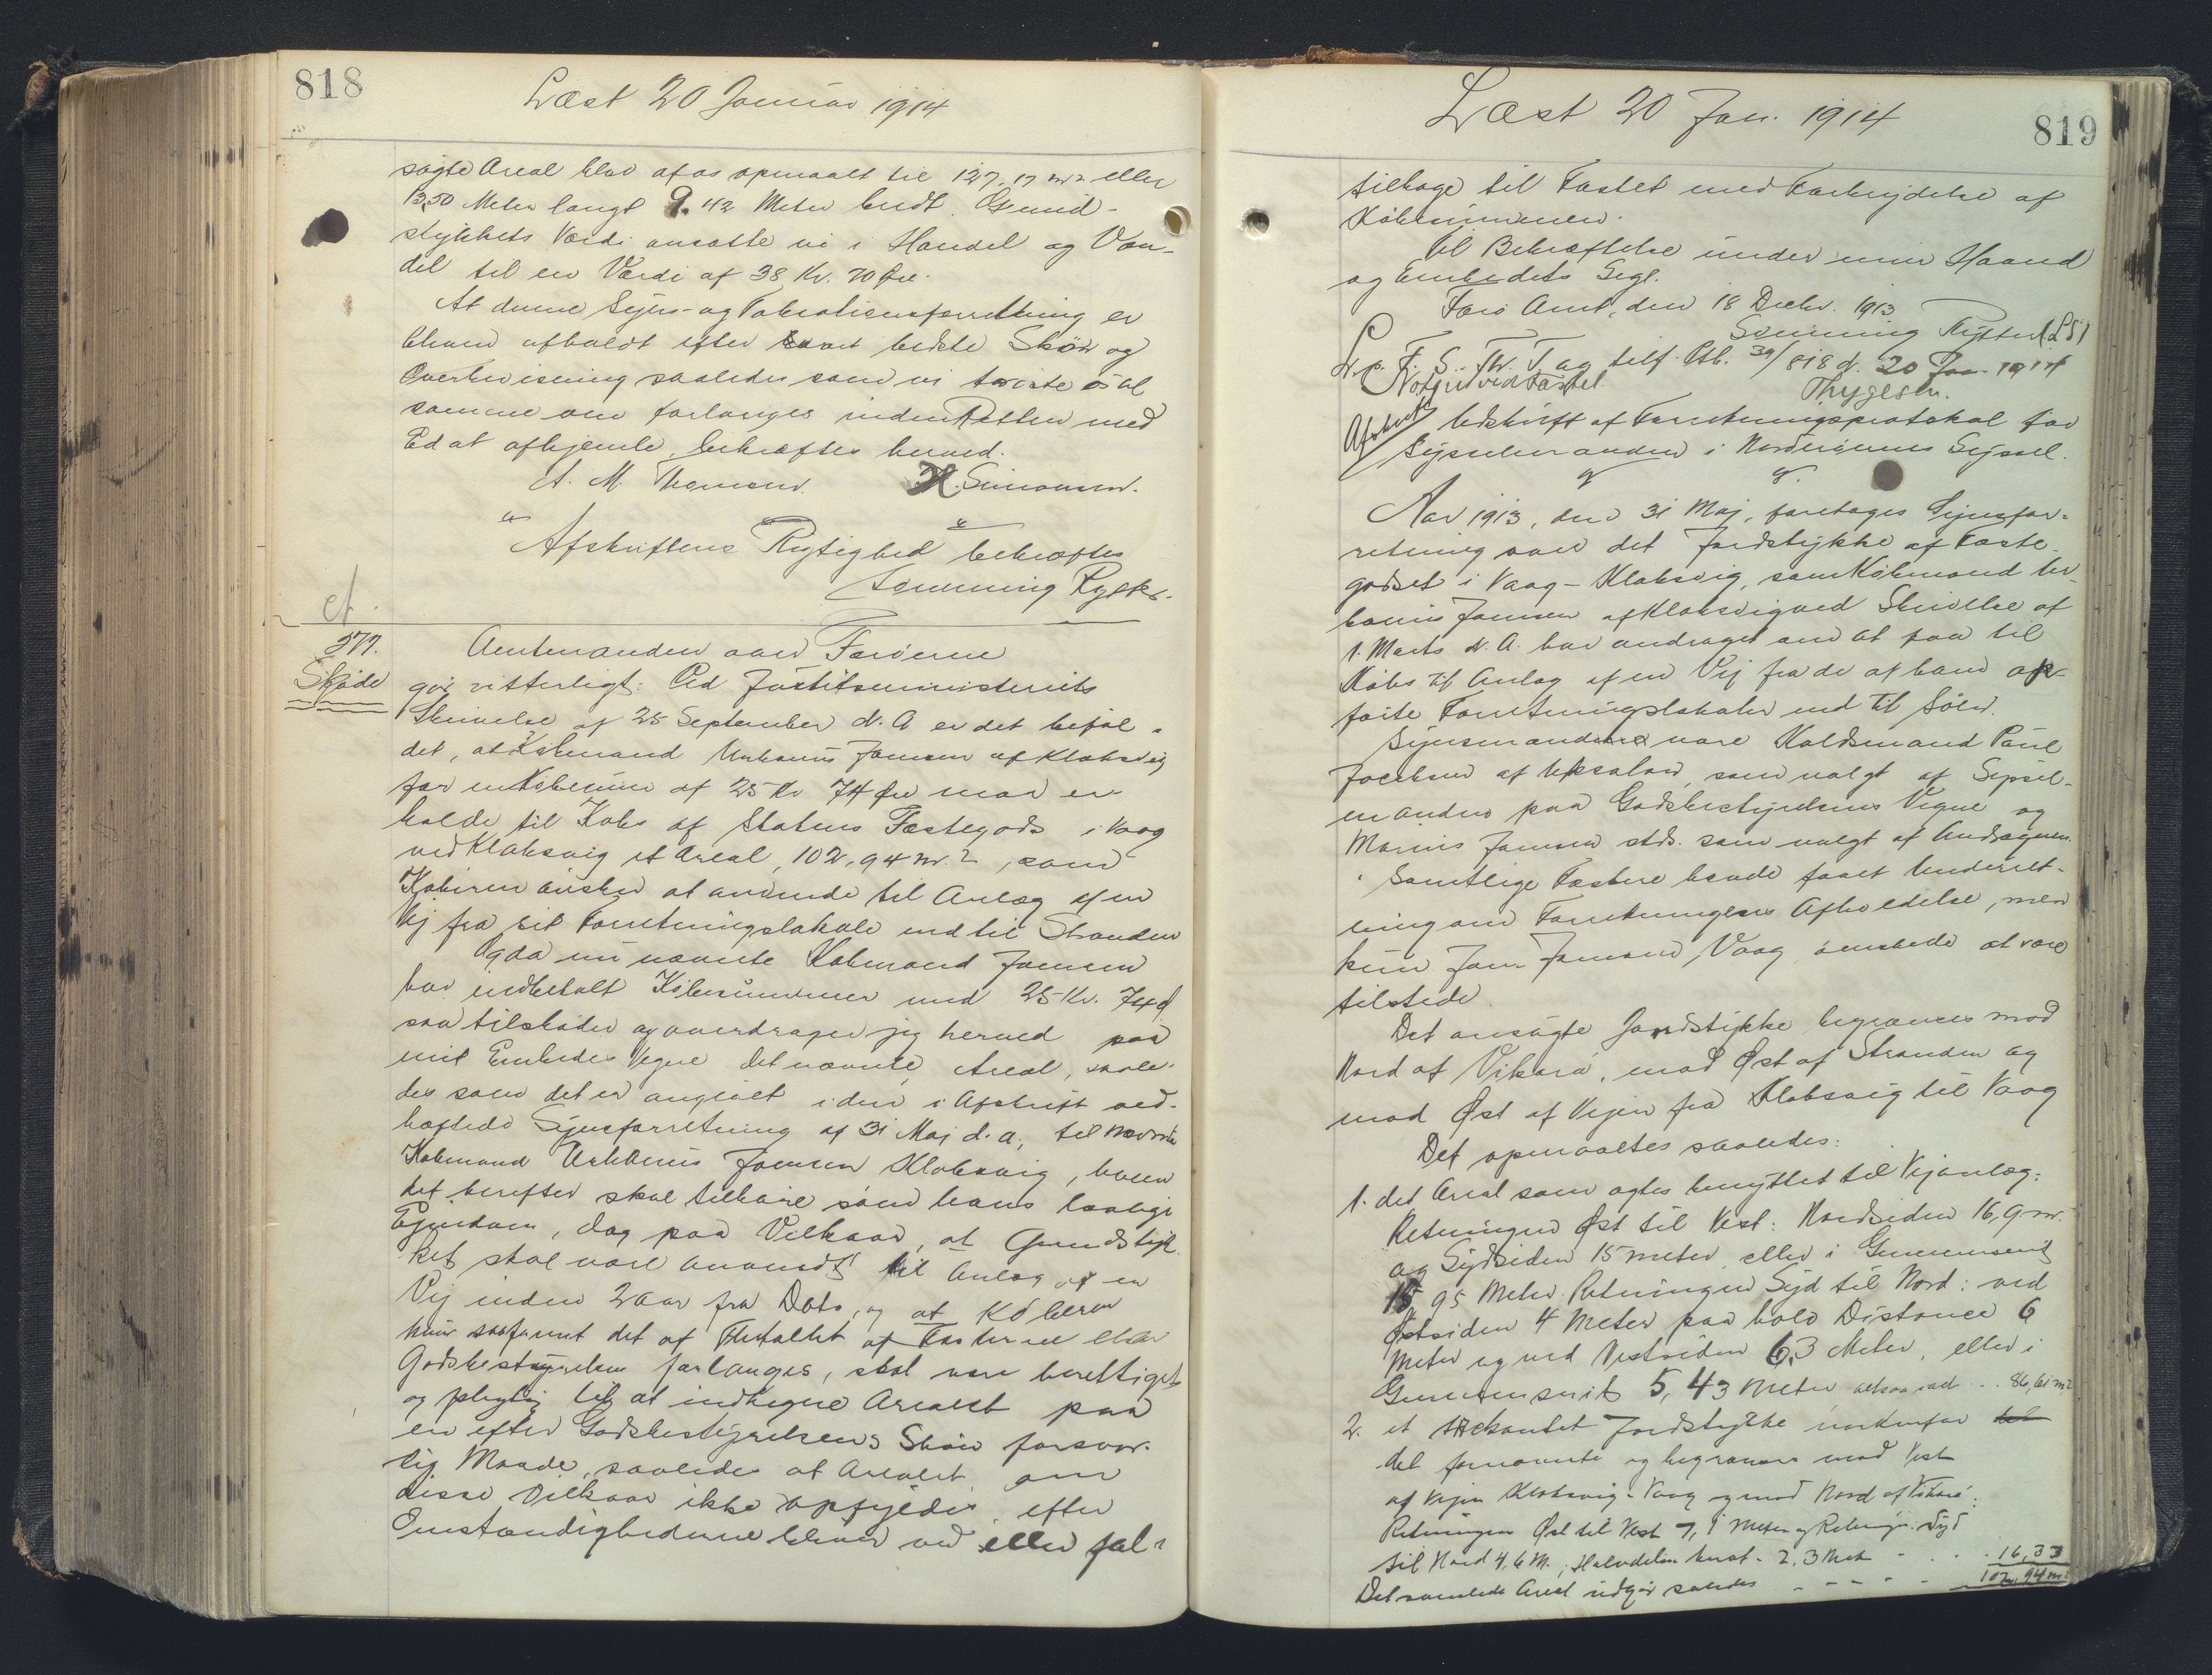 818
Læst 20 Januar 1914
søgte Areal blev af os opmaalt til 127,17 m2 eller
13,50 Meter langt 9.42 Meter bredt. Grund-
stykkets Værdi ansatte vi i Handel og Van-
del til en Værdi af 38 Kr. 70 Øre.
At denne Syns- og Taksationsforretning er
bleven afholdt efter vort bedste Skøn og
Overbevisning saaledes som vi trøste os til
samme om forlanges inden Retten med
Ed at afhjemle, bekræftes herved.
A. M. Thomsen. H. Simonsen.
Afskriftens Rigtighed bekræftes
Svenning Rytter.
277.
Skjøde
Amtmanden over Færøerne
gør vitterligt: Ved Justitsministeriets
Skrivelse af 25 September d. A er det befal-
det, at Købmand Urbanus Joensen af Klaksvig
for en Købesum af 25 Kr 74 Øre maa er-
holde til Købs af Statens Fæstegods i Vaag
ved Klaksvig et Areal, 102,94 m.2, som
Køberen ønsker at anvende til Anlæg af en
Vej fra sit Forretningslokale ned til Stranden
Og da nu nævnte Købmand Joensen
har indbetalt Købesummen med 25 Kr. 74 Ø
saa tilskøder og overdrager jeg herved paa
mit Embedes Vegne det nævnte Areal, saale-
des som det er angivet i den i Afskrift ved-
hæftede Synsforretning af 31 Maj d. a., til nævnte
Købmand Urbanus Joensen Klaksvig, hvem
det herefter skal tilhøre som hans lovlige
Ejendom, dog paa Vilkaar, at Grundstyk-
ket skal være anvendt til Anlæg af en
Vej inden 2 Aar fra Dato, og at Køberen
kun saafremt det af Flertallet af Fæsterne eller
Godsbestyrelsen forlanges, skal være berettiget
og pligtig til at indhegne Arealet paa
en efter Godsbestyrelsens Skøn forsvar-
lig Maade, saaledes at Arealet, om
disse Vilkaar ikke opfyldes, efter
Omstændighederne bliver ved eller fal-
819
Læst 20 Jan. 1914
tilbage til Fæstet med Fortrydelse af
Købesummen.
Til Bekræftelse under min Haand
og Embedets Segl.
Færø Amt, den 18 Decbr. 1913
Svenning Rytter (L.S)
L. p. F. S. Th. T og tilf. Ptb. 39/818 d. 20 Jan. 1914
Noteret ved Fæstet. Thygesen.
Afskrift
Udskrift af Forretningsprotokol for
Sysselmanden i Norderøernes Syssel.
Aar 1913, den 31 Maj, foretoges Synsfor-
retning over det Jordstykke af Fæste-
godset i Vaag-Klaksvig, som Købmand Ur-
banus Joensen af Klaksvig ved Skrivelse af
1. Marts d. A. har andraget om at faa til
Købs til Anlæg af en Vej fra de af ham op-
førte Forretningslokaler ned til Søen.
Synsmændene vare Kaldsmand Poul
Jocobsen af Uksaloar, som valgt af Syssel-
manden paa Godsbestyrelsens Vegne og
Marius Joensen stds. som valgt af Andrageren.
Samtlige Fæstere havde faaet Underret-
ning om Forretningens Afholdelse, men
kun Joen Joensen, Vaag ønskede at være
tilstede.
Det ansøgte Jordstykke begrænses mod
Nord af Vikará, mod Øst af Stranden og
mod Øst af Vejen fra Klaksvig til Vaag
Det opmaaltes saaledes:
1. det Areal som agtes benyttet til Vejanlæg:
Retningen Øst til Vest: Nordsiden 16,9 m.
og Sydsiden 15 meter, eller i Gennemsnit
15,95 Meter. Retningen Syd til Nord: ved
Østsiden 4 Meter paa halv Distance 6
Meter og ved Vestsiden 6,3 Meter, eller i
Gennemsnit 5,43 Meter altsaa ialt .. 86,61 m2
2. et trekantet Jordstykke nordenfor
det fornævnte og begrænses mod Vest
af Vejen Klaksvig-Vaag og mod Nord af Vikará:
Retningen Øst til Vest 7,1 Meter og Retningen Syd
til Nord 4,6 M.; Halvdelen heraf - 2,3 Met - . . . 16,33
Det samlede Areal udgør saaledes - - - - - 102,94 m2